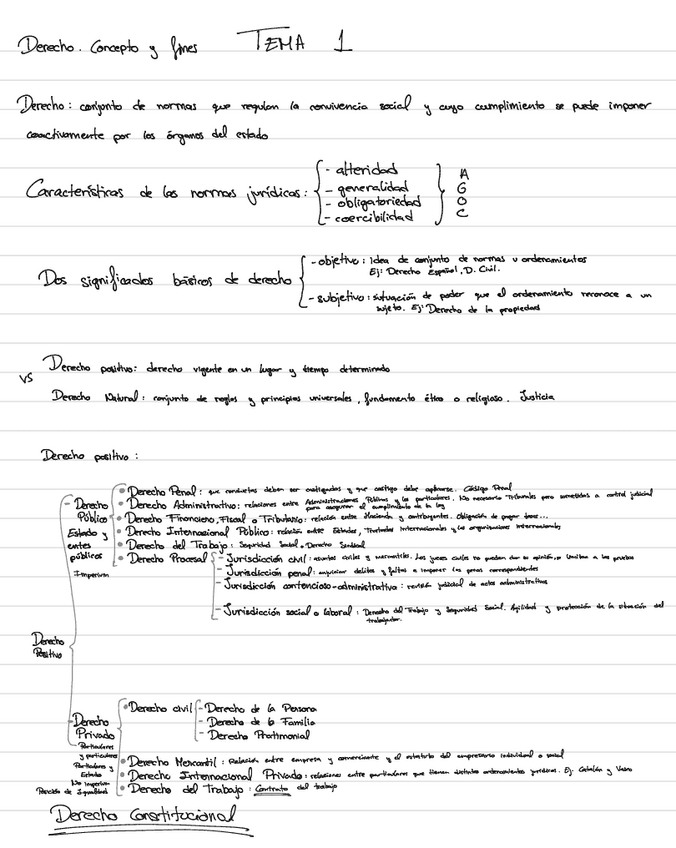 Derecho. Concepto y fines TEMA 1
Derecho: conjunto de normas que regulan la convivencia social y cuyo cumplimiento se puede imponer
coactivamente por los órganos del estado
Características de las normas jurídicas:
- alteridad
- generalidad
- obligatoriedad
- coercibilidad
A
G
O
C
Dos significados básicos de derecho
- objetivo: Idea de conjunto de normas u ordenamientos
Ej: Derecho Español, D. Civil.
- subjetivo: situación de poder que el ordenamiento reconoce a un
sujeto. Ej: Derecho de la propiedad
Derecho positivo: derecho vigente en un lugar y tiempo determinado
vs
Derecho Natural: conjunto de reglas y principios universales, fundamento ético o religioso. Justicia
Derecho positivo:
Derecho Positivo
- Derecho Público
Estado y entes públicos
Imperium
• Derecho Penal: que conductas deben ser castigadas y que castigo debe aplicarse. Código Penal
• Derecho Administrativo: relaciones entre Administraciones Públicas y los particulares. No necesario Tribunales pero sometidos a control judicial
para asegurar el cumplimiento de la ley
• Derecho Financiero, Fiscal o Tributario: relación entre Hacienda y contribuyentes. Obligación de pagar tasas...
• Derecho Internacional Público: relación entre Estados, Tratados Internacionales y las organizaciones internacionales
• Derecho del Trabajo: Seguridad Social + Derecho Sindical
• Derecho Procesal
- Jurisdicción civil: asuntos civiles y mercantiles. Los jueces civiles no pueden dar su opinión, se limitan a las pruebas
- Jurisdicción penal: enjuiciar delitos y faltas e imponer las penas correspondientes
- Jurisdicción contencioso-administrativa: revisión judicial de actos administrativos
- Jurisdicción social o laboral: Derecho del Trabajo y Seguridad Social. Agilidad y protección de la situación del
trabajador.
- Derecho Privado
- Particulares y particulares
Particulares y Estado
No Imperium
Posición de Igualdad
• Derecho civil
- Derecho de la Persona
- Derecho de la Familia
- Derecho Patrimonial
• Derecho Mercantil: Relación entre empresa y comerciante y el estatuto del empresario individual o social
• Derecho Internacional Privado: relaciones entre particulares que tienen distintos ordenamientos jurídicos. Ej: Catalán y Vasco
• Derecho del Trabajo: Contrato del trabajo
Derecho Constitucional